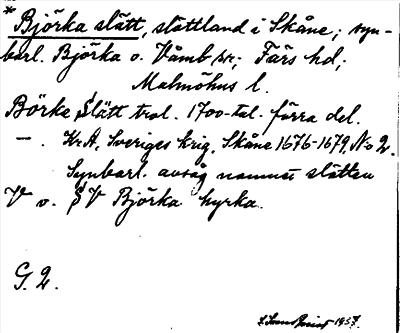 * Björka slätt, slättland i Skåne; syn-
barl. Björka o. Vämb sr; Färs hd;
Malmöhus l.
Börke Slätt trol. 1700-tal. förra del.
— . KrA, Sveriges krig, Skåne 1676-1679, No 2.
Synbarl. avsåg namnet slätten
V o. SV Björka kyrka.
G. 2.
1957.